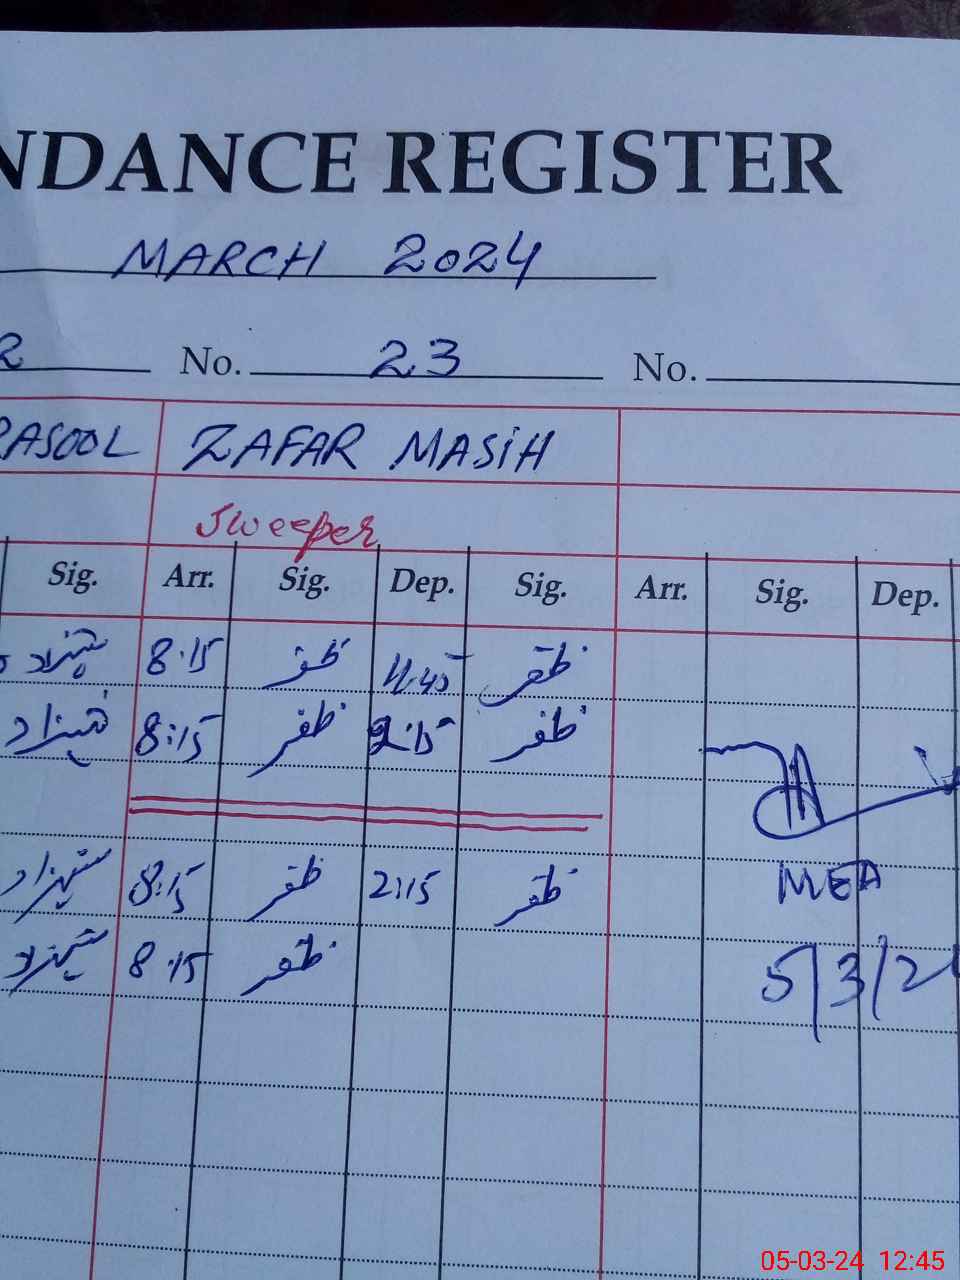 NDANCE REGISTER
MARCH 2024
2 No. 23 No.
RASOOL ZAFAR MASIH
Sweeper
Sig. Arr. Sig. Dep. Sig. Arr. Sig. Dep.
شہزاد 8:15 ظفر 11:45 ظفر
شہزاد 8:15 ظفر 2:15 ظفر
شہزاد 8:15 ظفر 2:15 ظفر
MEA
شہزاد 8:15 ظفر
5/3/2
05-03-24 12:45